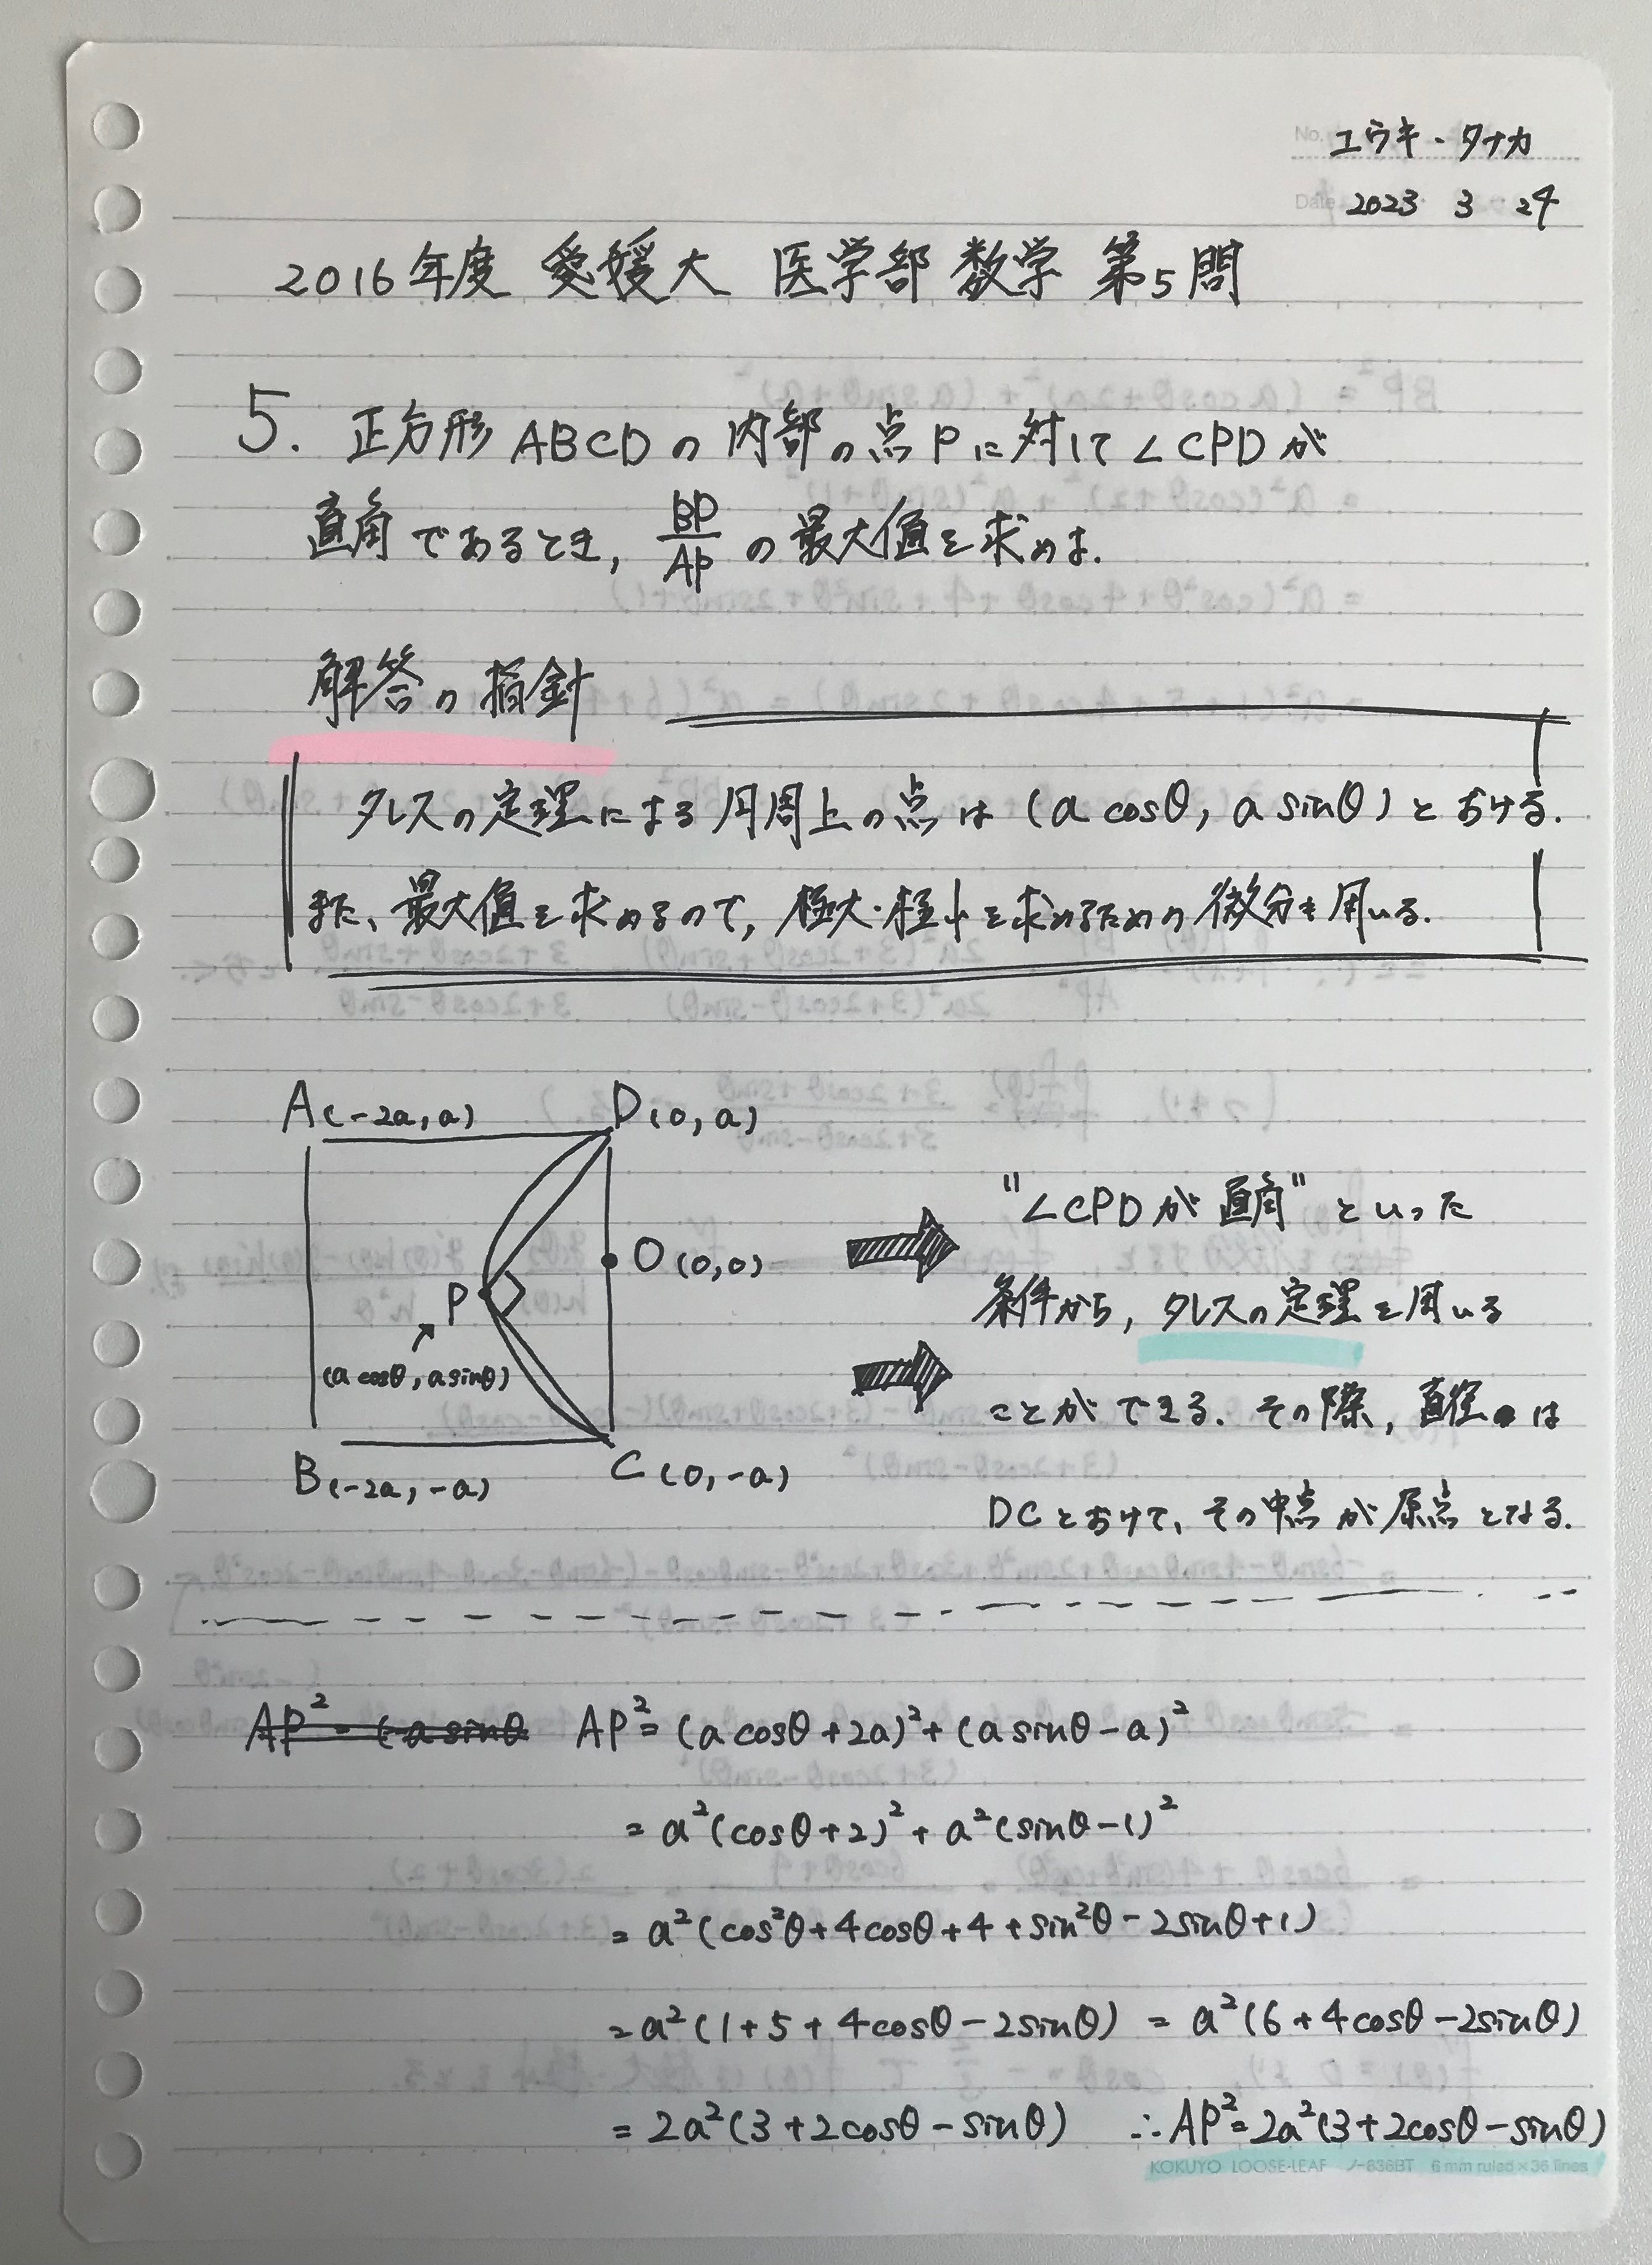 No. ユウキ・タナカ
Date 2023 3 24
2016年度 愛媛大 医学部 数学 第5問
5. 正方形 ABCD の 内部の点 P に 対して ∠CPD が
直角 であるとき, BP/AP の 最大値を求めよ.
解答の指針
タレスの定理による円周上の点は (a cosθ, a sinθ) とおける.
また、最大値を求めるので, 極大・極小を求めるための微分を用いる.
A(-2a, a) D(0, a)
"∠CPDが 直角" といった
O(0,0)
P
条件から, タレスの定理を用いる
(a cosθ, a sinθ)
ことができる. その際, 直径は
B(-2a, -a) C(0, -a)
DCとおけて、その中点が原点となる.
AP² = (-a sinθ AP² = (a cosθ + 2a)² + (a sinθ - a)²
= a²(cosθ+2)² + a²(sinθ-1)²
= a²(cos²θ + 4cosθ + 4 + sin²θ - 2sinθ + 1)
= a²(1 + 5 + 4cosθ - 2sinθ) = a²(6 + 4cosθ - 2sinθ)
= 2a²(3 + 2cosθ - sinθ) ∴ AP² = 2a²(3 + 2cosθ - sinθ)
KOKUYO LOOSE-LEAF ノ-836BT 6 mm ruled×36 lines